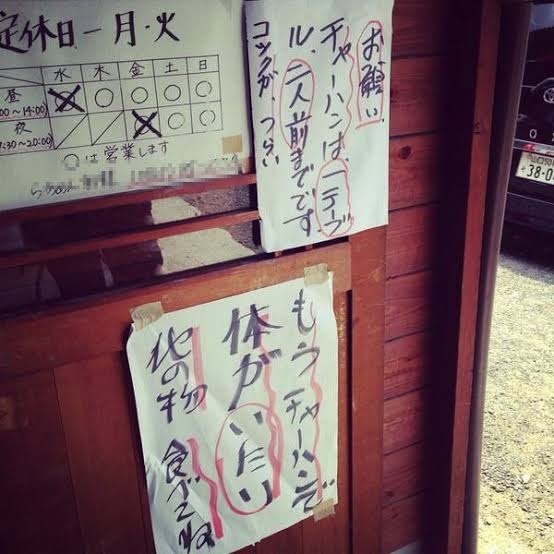 定休日－月・火
水 木 金 土 日
昼 × ○ ○ ○ ○
00～14:00)
夜 × ○ ○
7:30～20:00)
○は営業します
お願い
チャーハンは、一テーブ
ル、二人前までです。
コックが、つらい
もうチャーハンで
体がいたい
他の物 食べてね
山口
38-0